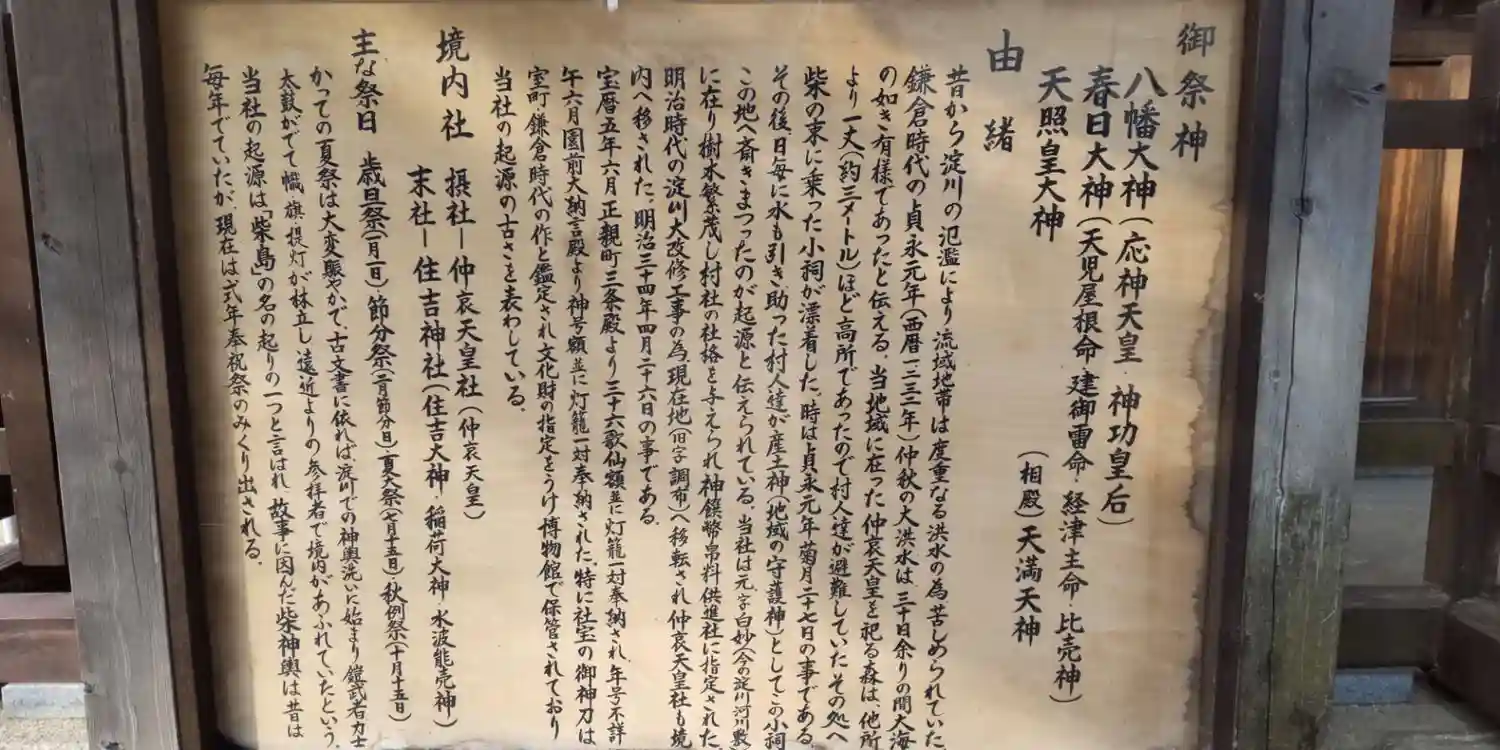 御祭神
八幡大神(応神天皇・神功皇后)
春日大神(天児屋根命・建御雷命・経津主命・比売神)
天照皇大神 (相殿)天満天神
由緒
昔から淀川の氾濫により流域地帯は度重なる洪水の為苦しめられていた。
鎌倉時代の貞永元年(西暦一二三二年)仲秋の大洪水は、三十日余りの間大海
の如き有様であったと伝える。当地域に在った仲哀天皇を祀る森は、他所
より一丈(約三メートル)ほど高所であったので村人達が避難していたその処へ
柴の束に乗った小祠が漂着した。時は貞永元年菊月二十七日の事である。
その後、日毎に水も引き、助った村人達が産土神(地域の守護神)としてこの小祠
この地へ斎きまつったのが起源と伝えられている。当社は元字白妙(今の淀川河川敷
に在り樹木繁茂し村社の社格を与えられ神饌幣帛料供進社に指定された。
明治時代の淀川大改修工事の為、現在地(旧字調布)へ移転され仲哀天皇社も境
内へ移された。明治三十四年四月二十六日の事である。
宝暦五年六月正親町三条殿より三十六歌仙額並に灯籠一対奉納され、年号不詳
午六月園前大納言殿より神号額並に灯籠一対奉納された。特に社宝の御神刀は
室町・鎌倉時代の作と鑑定され文化財の指定をうけ博物館で保管されており
当社の起源の古さを表わしている。
境内社 摂社ー仲哀天皇社(仲哀天皇)
末社ー住吉神社(住吉大神・稲荷大神・水波能売神)
主な祭日 歳旦祭(一月一日)節分祭(二月節分日)・夏大祭(七月十五日)・秋例祭(十月十五日)
かっての夏祭は大変賑やかで、古文書に依れば、淀川での神輿洗いに始まり鎧武者力士
太鼓がでて幟、旗、提灯が林立し、遠近よりの参拝者で境内があふれていたという。
当社の起源は「柴島」の名の起りの一つと言はれ、故事に因んだ柴神輿は昔は
毎年でていたが、現在は式年奉祝祭のみくり出される。